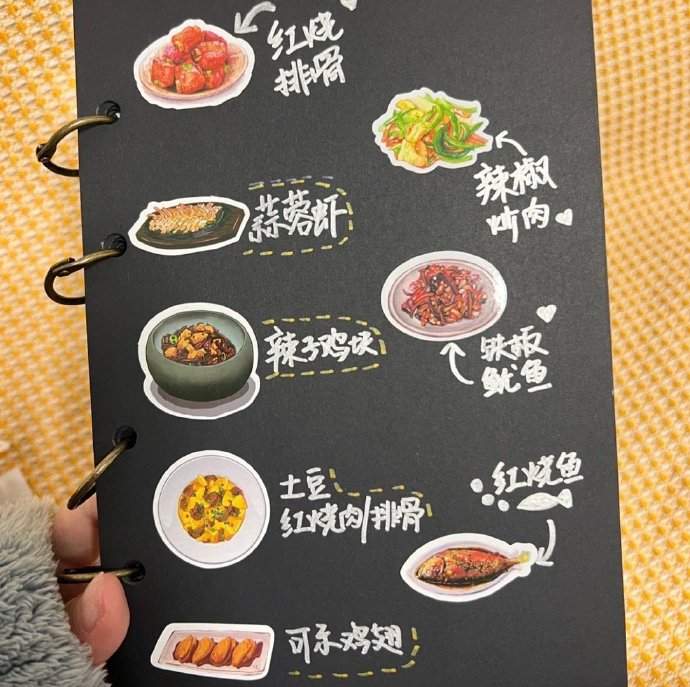 红烧
排骨
辣椒
炒肉
蒜蓉虾
辣子鸡块
铁板
鱿鱼
土豆
红烧肉/排骨
红烧鱼
可乐鸡翅